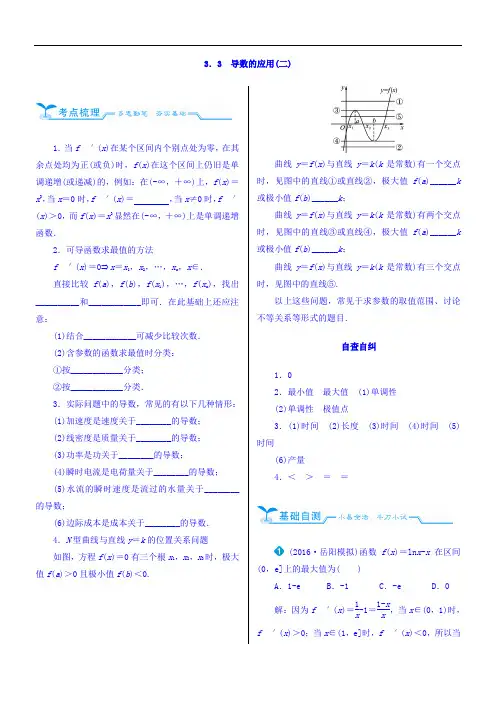 3．3 导数的应用(二)
考点梳理 多思勤写 夯实基础
1．当f ′(x)在某个区间内个别点处为零，在其
余点处均为正(或负)时，f(x)在这个区间上仍旧是单
调递增(或递减)的，例如：在(-∞，+∞)上，f(x)=
x³，当x=0时，f ′(x)= ，当x≠0时，f ′
(x)>0，而f(x)=x³显然在(-∞，+∞)上是单调递增
函数．
2．可导函数求最值的方法
f ′(x)=0⇒x=x₁，x₂，…，xₙ，x∈．
直接比较f(a)，f(b)，f(x₁)，…，f(xₙ)，找出
__________和____________即可．在此基础上还应注
意：
(1)结合____________可减少比较次数．
(2)含参数的函数求最值时分类：
①按____________分类；
②按____________分类．
3．实际问题中的导数，常见的有以下几种情形：
(1)加速度是速度关于________的导数；
(2)线密度是质量关于________的导数；
(3)功率是功关于________的导数；
(4)瞬时电流是电荷量关于________的导数；
(5)水流的瞬时速度是流过的水量关于________
的导数；
(6)边际成本是成本关于________的导数．
4．N型曲线与直线y=k的位置关系问题
如图，方程f(x)=0有三个根x₁，x₂，x₃时，极大
值f(a)>0且极小值f(b)<0.
y y=f(x)
①
③
⑤
O x₁ a x₂ b x₃ x
④
②
曲线y=f(x)与直线y=k(k是常数)有一个交点
时，见图中的直线①或直线②，极大值f(a)______k
或极小值f(b)______k；
曲线y=f(x)与直线y=k(k是常数)有两个交点
时，见图中的直线③或直线④，极大值f(a)______k
或极小值f(b)______k；
曲线y=f(x)与直线y=k(k是常数)有三个交点
时，见图中的直线⑤．
以上这些问题，常见于求参数的取值范围、讨论
不等关系等形式的题目．
自查自纠
1．0
2．最小值 最大值 (1)单调性
(2)单调性 极值点
3．(1)时间 (2)长度 (3)时间 (4)时间 (5)
时间
(6)产量
4．< > = =
基础自测 小题查漏 牛刀小试
1 (2016·岳阳模拟)函数f(x)=lnx-x在区间
(0，e]上的最大值为( )
A．1-e B．-1 C．-e D．0
解：因为f ′(x)=1/x-1=(1-x)/x，当x∈(0，1)时，
f ′(x)>0；当x∈(1，e]时，f ′(x)<0，所以当